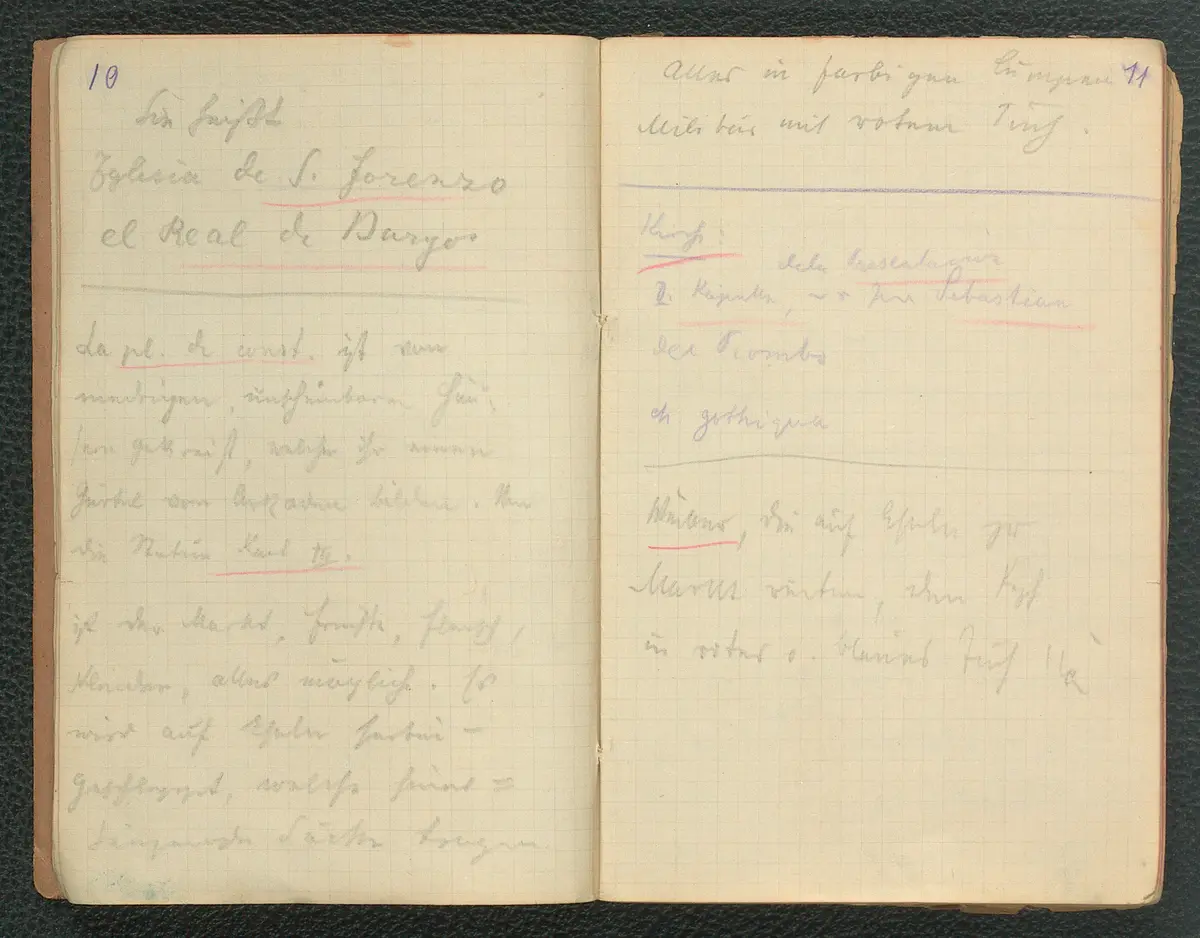 10
Sie heißt
Iglesia de S. Lorenzo
el Real de Burgos
La pl. de const. ist von
niedrigen, unscheinbaren Häu-
sern gekreist, welche ihr einen
Gürtel von Arkaden bilden. Um
die Statue Karl III.
ist der Markt, Früchte, Fleisch,
Kleider, alles mögliche. Es
wird auf Eseln herbei-
geschleppt, welche
Säcke tragen
11
Alles in farbigen Lumpen
Militär mit rotem Tuch.
Kirche:
dela Presentacion
II. Kapelle, Sebastian
del Piombo
gothique
Weiber, die auf Eseln zu
Markt reiten, den Kopf
in rotes o. blaues Tuch